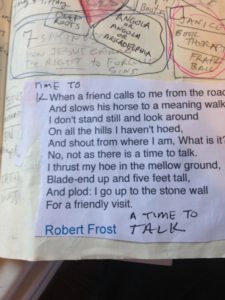 ROOTS
ANGOLA
OR
JANICE
BOOK
THERAPY
7-
JESUS
THE RIGHT TO FORGIVE
SINS
TIME TO
When a friend calls to me from the road
And slows his horse to a meaning walk,
I don't stand still and look around
On all the hills I haven't hoed,
And shout from where I am, What is it?
No, not as there is a time to talk.
I thrust my hoe in the mellow ground,
Blade-end up and five feet tall,
And plod: I go up to the stone wall
For a friendly visit.
Robert Frost
A TIME TO
TALK